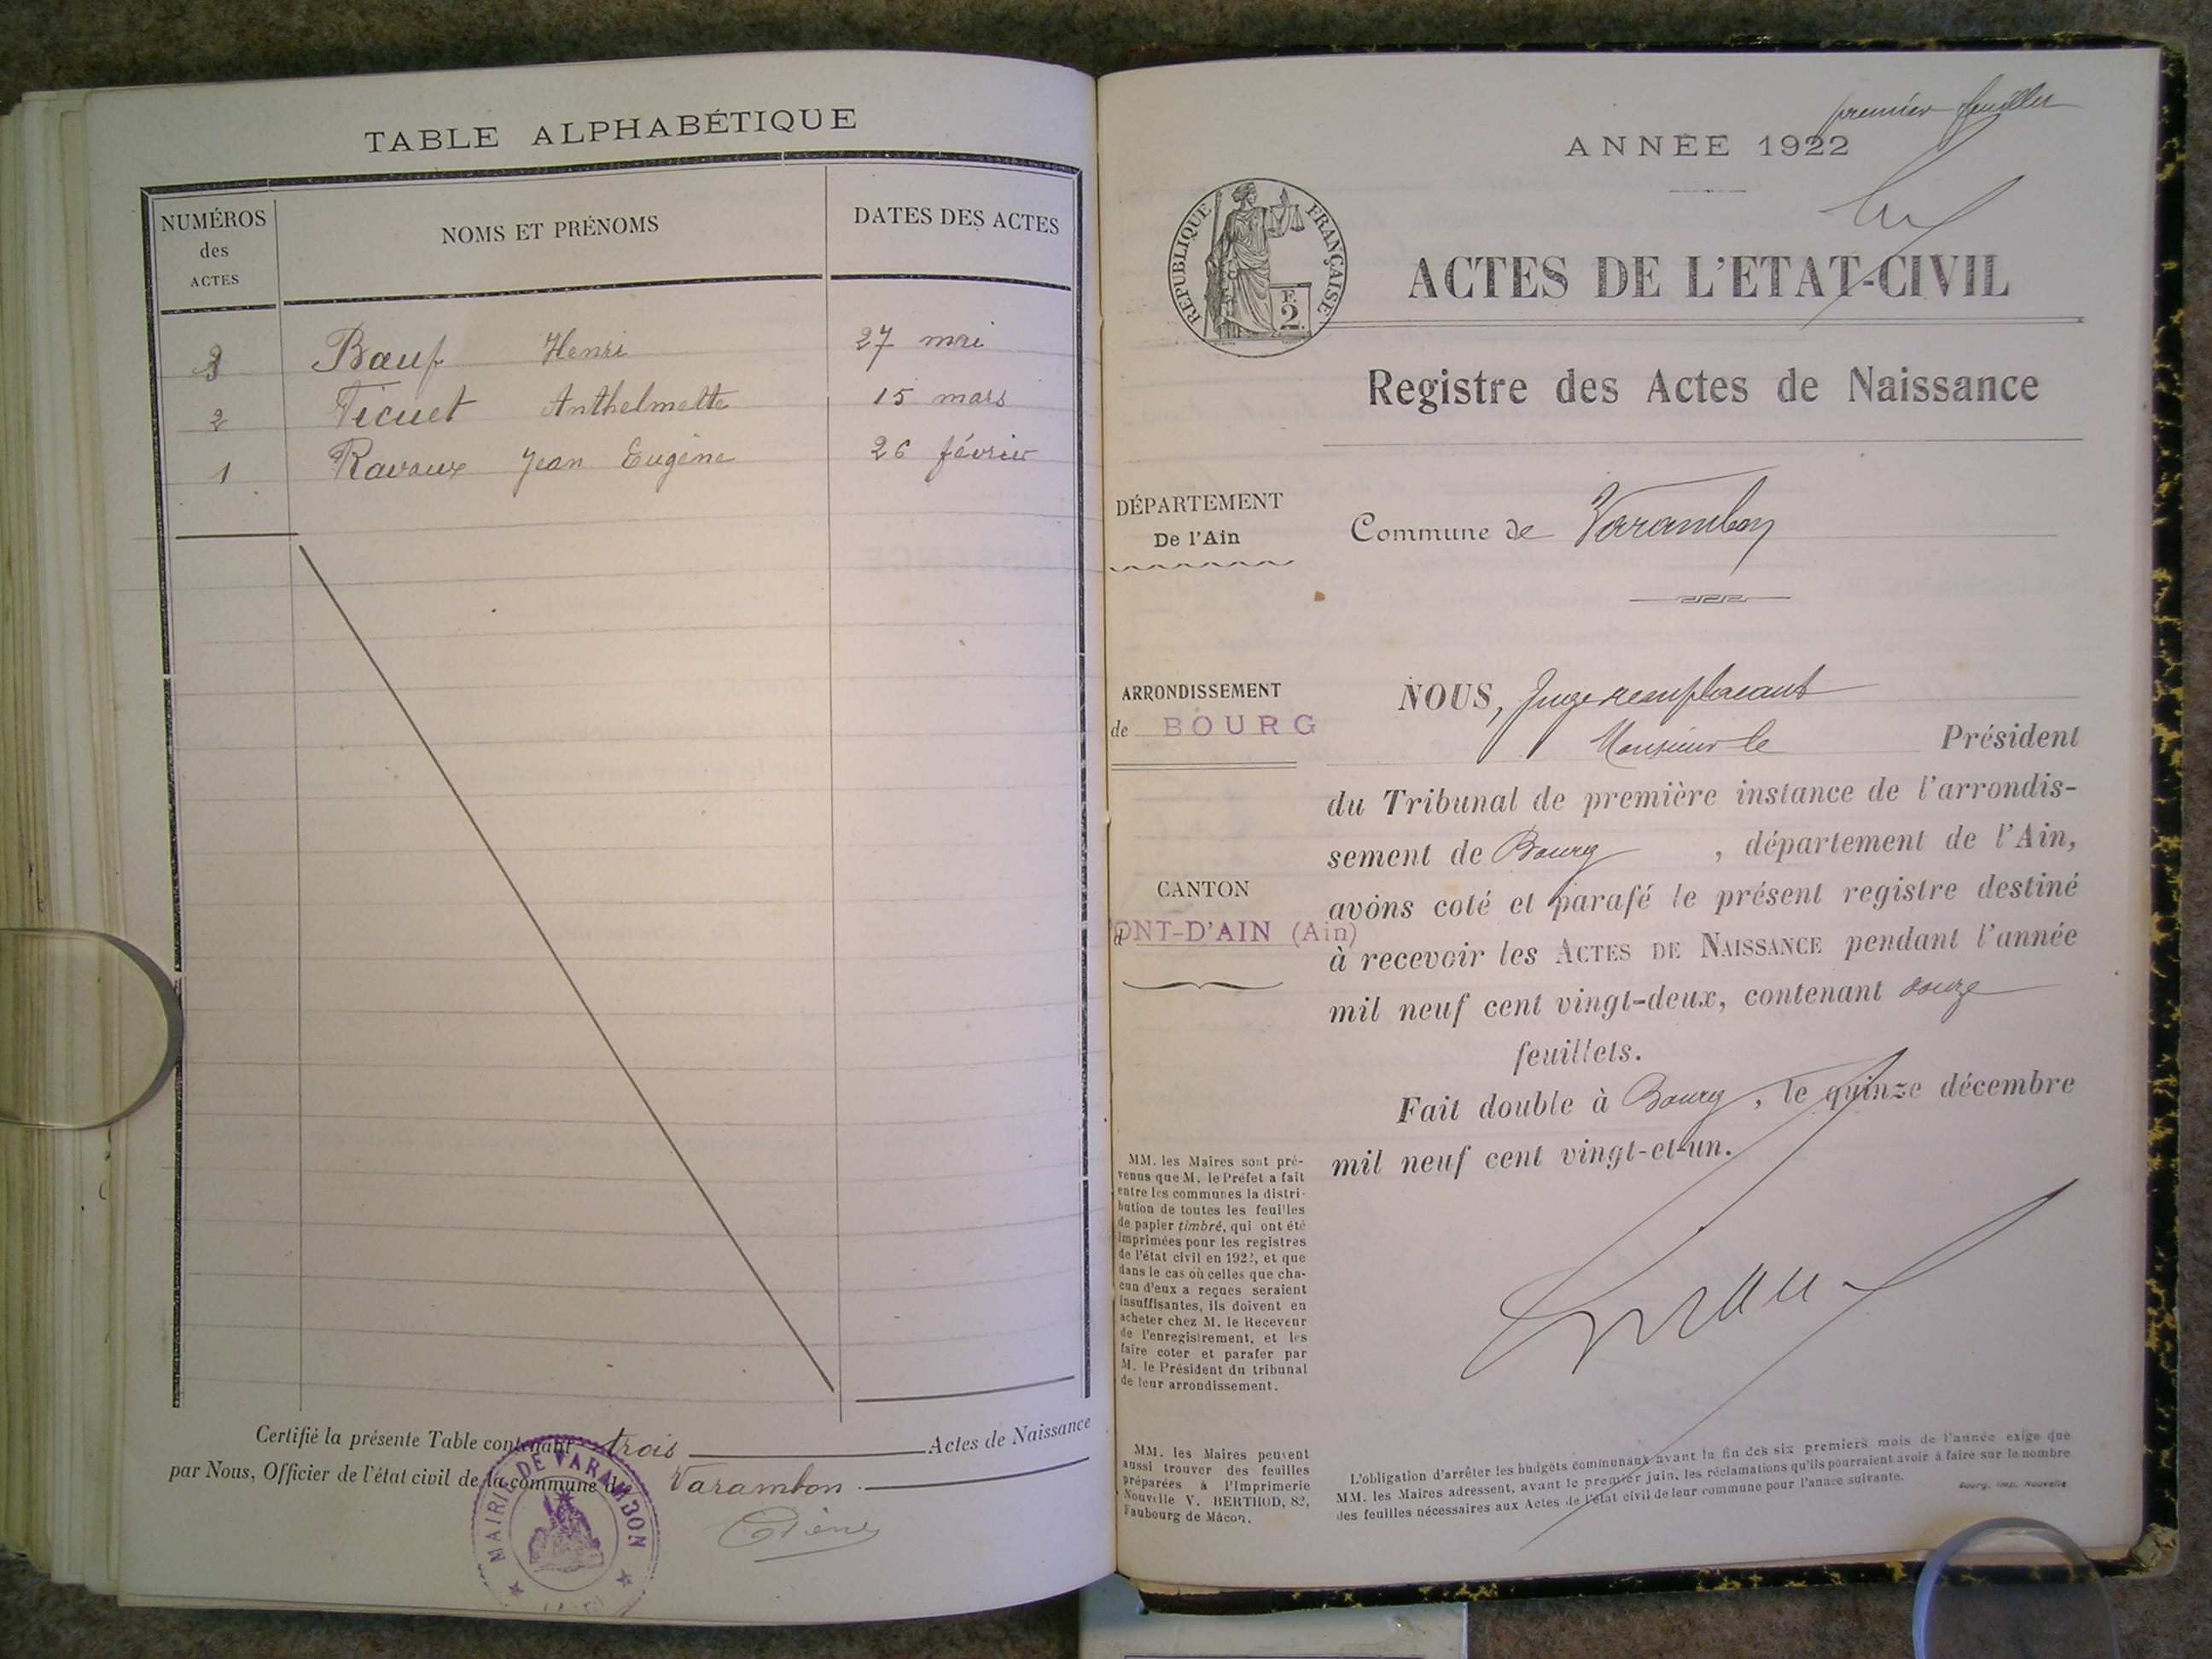 TABLE ALPHABÉTIQUE
NUMÉROS
des
ACTES
NOMS ET PRÉNOMS
DATES DES ACTES
3 Bœuf Henri 27 mai
2 Ticuet Anthelmette 15 mars
1 Ravaux Jean Eugène 26 février
Certifié la présente Table contenant trois Actes de Naissance
par Nous, Officier de l'état civil de la commune de Varambon.
MAIRIE DE VARAMBON
premier feuillet
ANNÉE 1922
RÉPUBLIQUE FRANÇAISE
F.
2.
ACTES DE L'ETAT-CIVIL
Registre des Actes de Naissance
DÉPARTEMENT
De l'Ain
Commune de Varambon
ARRONDISSEMENT
de BOURG
NOUS, Juge remplaçant
Monsieur le Président
du Tribunal de première instance de l'arrondis-
sement de Bourg, département de l'Ain,
CANTON
d PONT-D'AIN (Ain)
avons coté et parafé le présent registre destiné
à recevoir les ACTES DE NAISSANCE pendant l'année
mil neuf cent vingt-deux, contenant douze
feuillets.
Fait double à Bourg, le quinze décembre
mil neuf cent vingt-et-un.
MM. les Maires sont pré-
venus que M. le Préfet a fait
entre les communes la distri-
bution de toutes les feuilles
de papier timbré, qui ont été
imprimées pour les registres
de l'état civil en 1922, et que
dans le cas où celles que cha-
cun d'eux a reçues seraient
insuffisantes, ils doivent en
acheter chez M. le Receveur
de l'enregistrement, et les
faire coter et parafer par
M. le Président du tribunal
de leur arrondissement.
MM. les Maires peuvent
aussi trouver des feuilles
préparées à l'Imprimerie
Nouvelle V. BERTHOD, 82,
Faubourg de Mâcon.
L'obligation d'arrêter les budgets communaux avant la fin des six premiers mois de l'année exige que
MM. les Maires adressent, avant le premier juin, les réclamations qu'ils pourraient avoir à faire sur le nombre
des feuilles nécessaires aux Actes de l'état civil de leur commune pour l'année suivante.
Bourg, Imp. Nouvelle